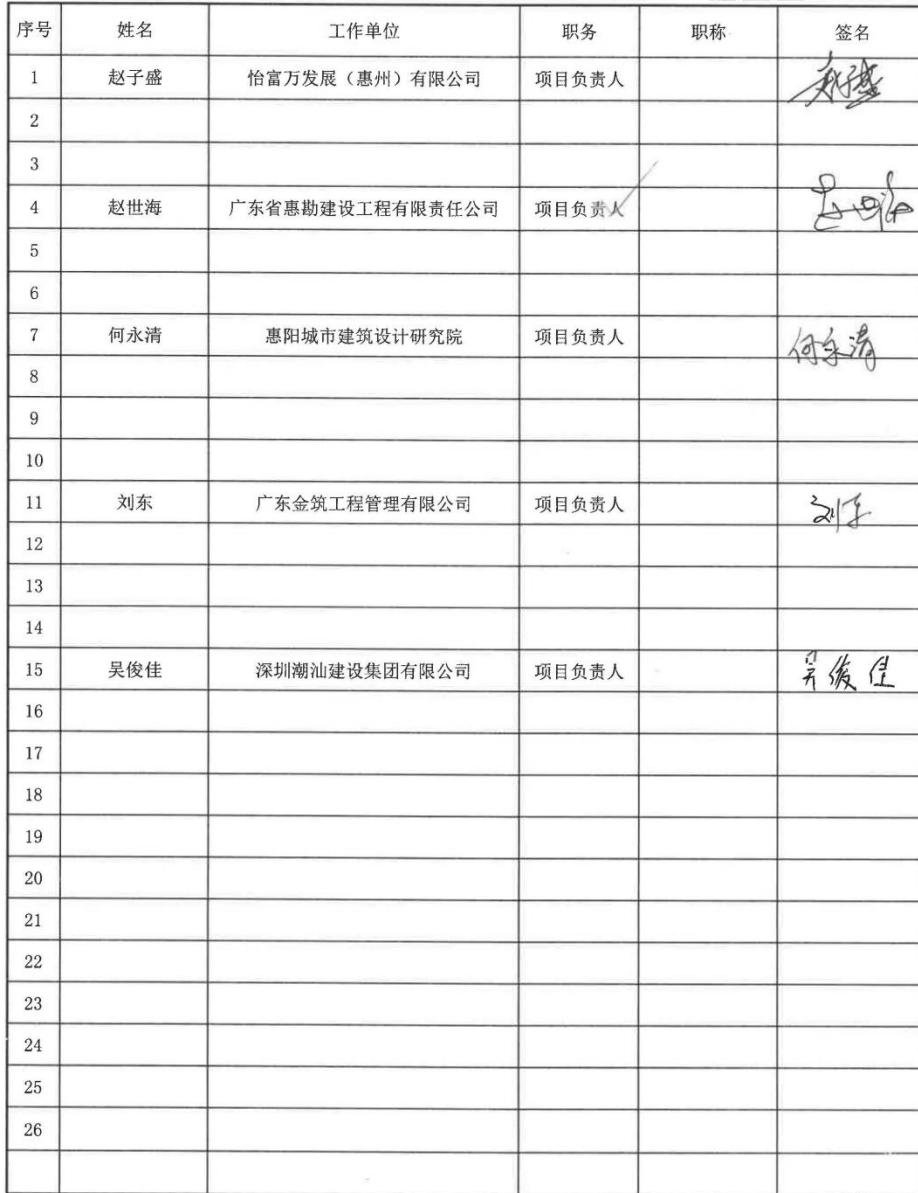 序号 姓名 工作单位 职务 职称 签名
1 赵子盛 怡富万发展（惠州）有限公司 项目负责人
2
3
4 赵世海 广东省惠勘建设工程有限责任公司 项目负责人
5
6
7 何永清 惠阳城市建筑设计研究院 项目负责人 何永清
8
9
10
11 刘东 广东金筑工程管理有限公司 项目负责人 刘东
12
13
14
15 吴俊佳 深圳潮汕建设集团有限公司 项目负责人 吴俊佳
16
17
18
19
20
21
22
23
24
25
26